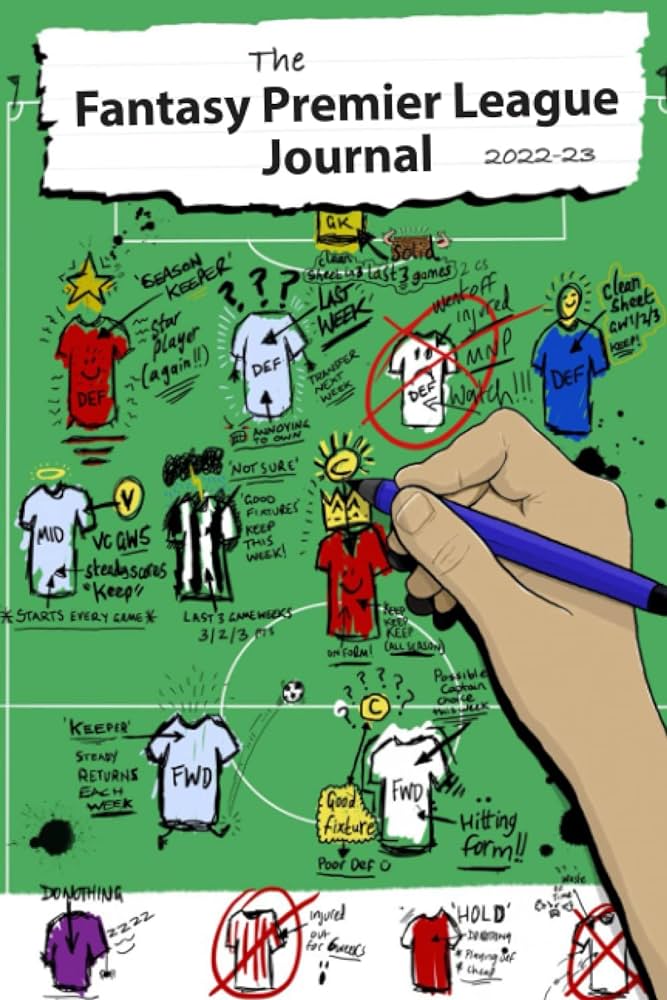 The
Fantasy Premier League
Journal 2022-23
GK
Solid
clean
sheet last 3 games
'SEASON
KEEPER'
Star
player
(again!!)
DEF
? ? ?
LAST
WEEK
DEF
TRANSFER
NEXT
WEEK
ANNOYING
TO OWN
went off
injured
MNP
DEF
Watch!!!
clean
Sheet
GW1/2/3
KEEP!
DEF
V
MID
VC GW5
steady scores
"Keep"
*STARTS EVERY GAME*
'NOT SURE'
'GOOD
FIXTURES'
KEEP
THIS
WEEK!
LAST 3 GAMEWEEKS
3/2/3 pts
C
KEEP
KEEP
KEEP
(ALL SEASON)
ON FORM!
'KEEPER'
STEADY
RETURNS
EACH
WEEK
FWD
? ? ? ? ?
C
Possible
Captain
choice
this week
FWD
Good
fixture
Poor Def
Hitting
form!!
DO NOTHING
zzzz
injured
out
for 6 weeks
!!
'HOLD'
* Playing Def
* Cheap
waste
of
Time